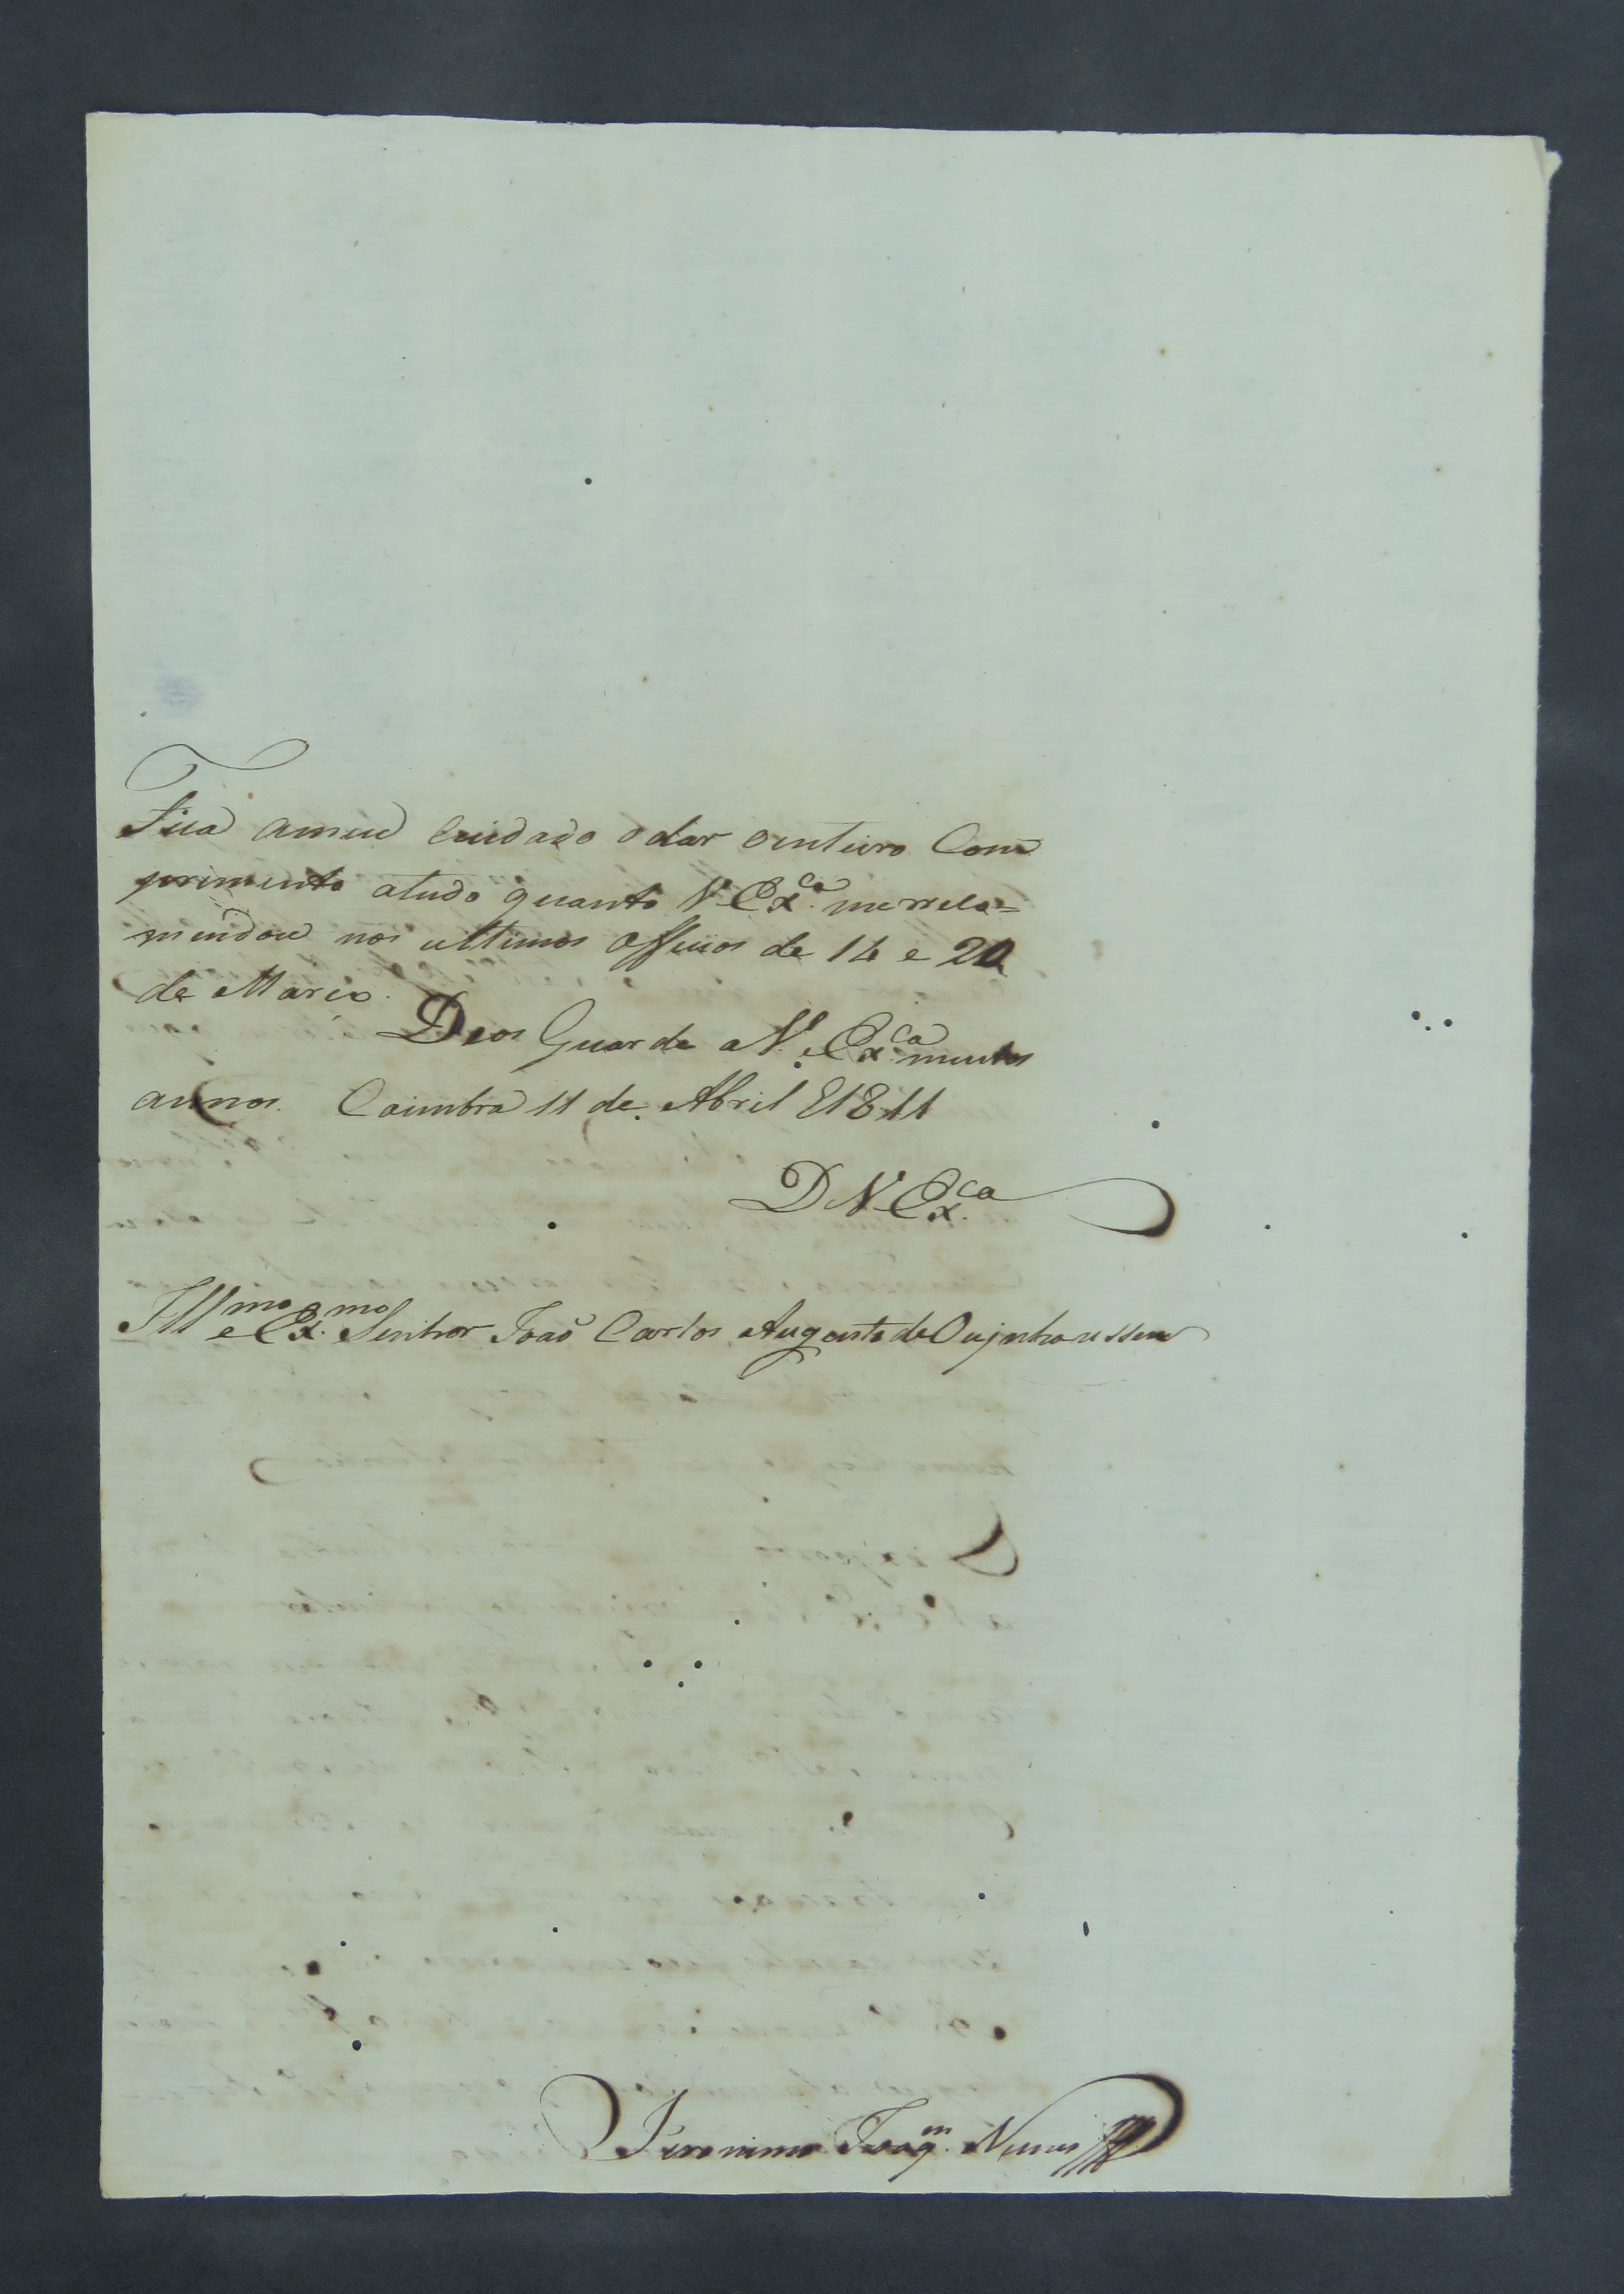 Fica ameu cuidado odar ointeiro Com
primento atudo quanto V. Ex.ca merreco=
mendou nos ultimos officios de 14 e 20
de Março.
Deos Guarde a V. Ex.ca muitos
annos. Coimbra 11 de Abril 1811
D V. Ex.ca
Ill.mo e Ex.mo Senhor João Carlos Augusto de Oujnhaussen
Jeronimo Joaq.m Nunes